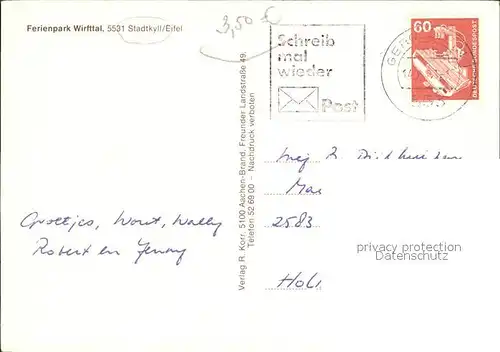 Ferienpark Wirfttal, 5531 Stadtkyll/Eifel
3,50 €
Schreib
mal
wieder
Post
60
DEUTSCHE BUNDESPOST
Verlag R. Korr, 5100 Aachen-Brand, Freunder Landstraße 49,
Telefon 52 68 00 - Nachdruck verboten
Groetjes, Wout, Wally
Robert en Jenny
2583
privacy protection
Datenschutz